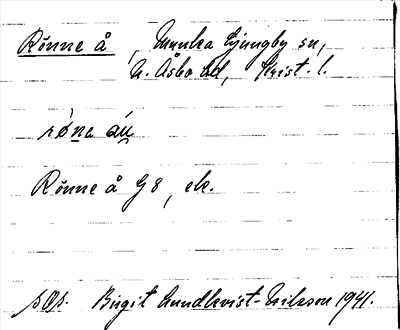 Rönne å, Munka Ljungby sn,
N. Åsbo hd, Krist. l.
rø̀ne áu
Rönne å G 8, ek.
Birgit Lundkvist-Nilsson 1941.